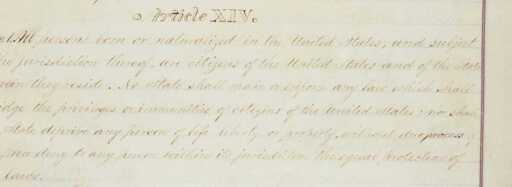 Article XIV.
All persons born or naturalized in the United States, and subject
the jurisdiction thereof, are citizens of the United States and of the State
they reside. No State shall make or enforce any law which shall
idge the privileges or immunities of citizens of the United States; nor shall
State deprive any person of life, liberty, or property, without due process of
nor deny to any person within its jurisdiction the equal protection of
laws.